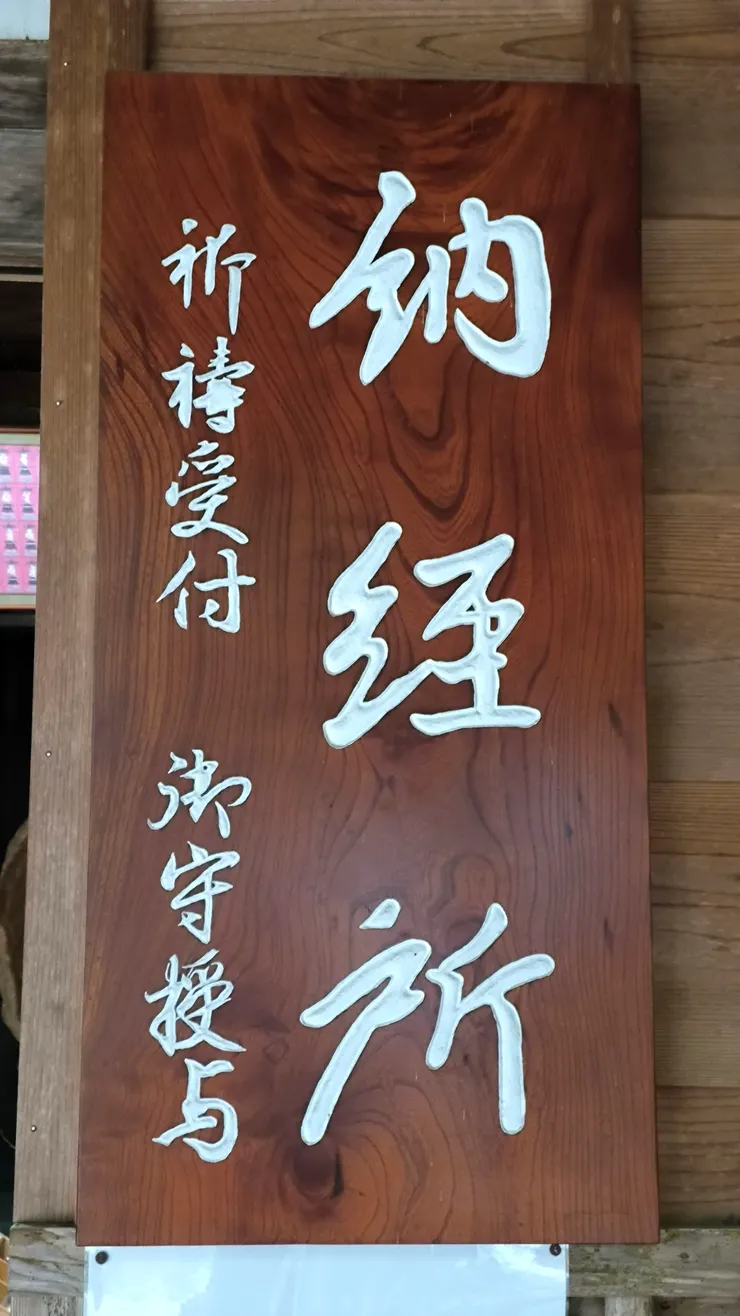 納経所
祈禱受付 御守授与